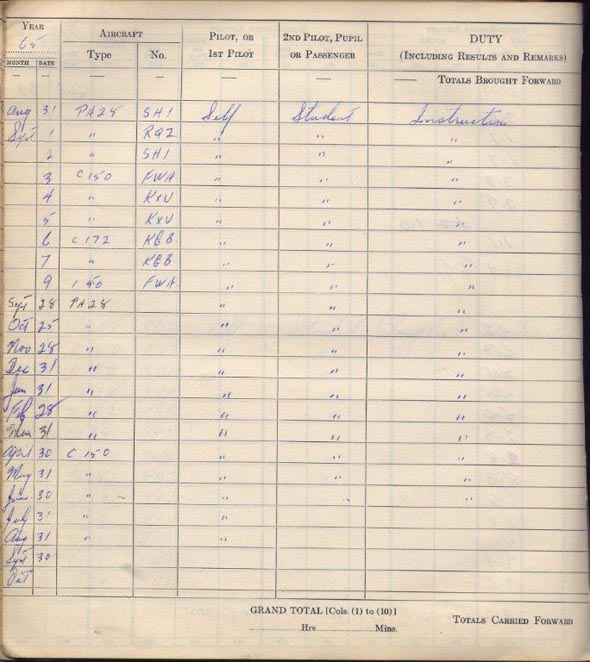 YEAR
65
AIRCRAFT
PILOT, OR
1ST PILOT
2ND PILOT, PUPIL
OR PASSENGER
DUTY
(INCLUDING RESULTS AND REMARKS)
MONTH DATE Type No.
— — — — — — — TOTALS BROUGHT FORWARD
Aug 31 PA28 SHI Self Student Instruction
Sept 1 " RQZ " " "
2 " SHI " " "
3 C150 FWA " " "
4 " KXU " " "
5 " KXU " " "
6 C172 KGB " " "
7 " KGB " " "
9 150 FWA " " "
Sept 28 PA28 " " "
Oct 25 " " " "
Nov 28 " " " "
Dec 31 " " " "
Jan 31 " " " "
Feb 28 " " " "
Mar 31 " " " "
April 30 C150 " " "
May 31 " " " "
June 30 " " " "
July 31 " "
Aug 31 " "
Spt 30
Oct
GRAND TOTAL [Cols. (1) to (10)]
Hrs. Mins.
TOTALS CARRIED FORWARD